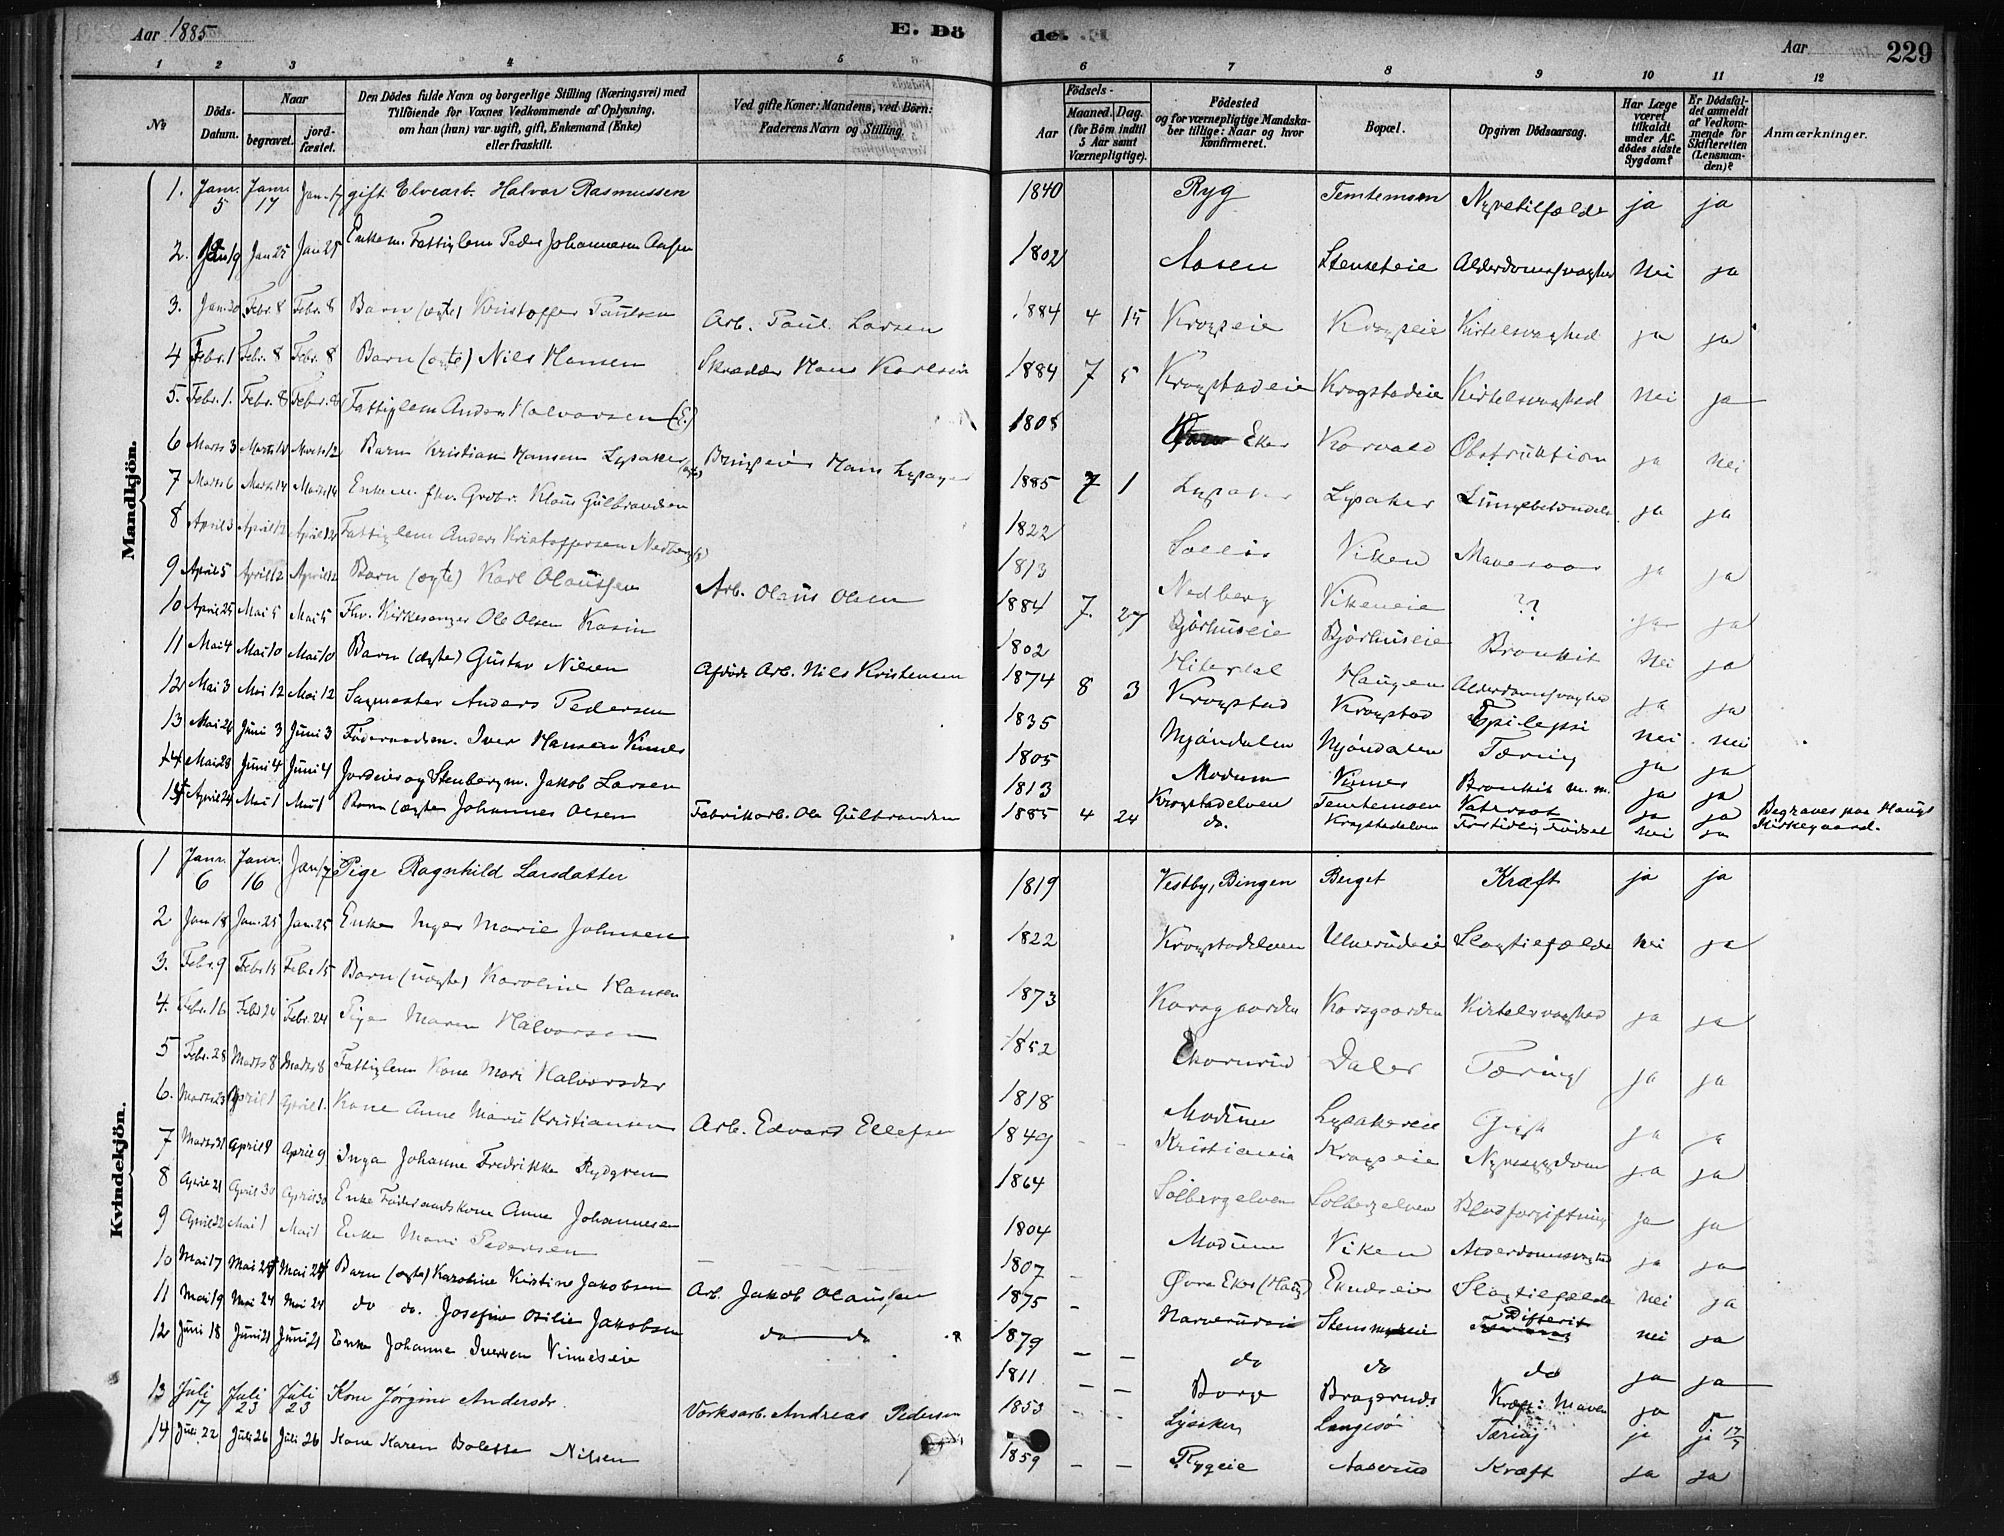 Aar 1885
E. Dö
de.
Aar
229
1 2 3 4 5 6 7 8 9 10 11 12
No
Döds-Datum.
Naar
begravet.
jord-fæstet.
Den Dödes fulde Navn og borgerlige Stilling (Næringsvei) med
Tilföiende for Voxnes Vedkommende af Oplysning,
om han (hun) var ugift, gift, Enkemand (Enke)
eller fraskilt.
Ved gifte Koner: Mandens, ved Börn:
Faderens Navn og Stilling.
Födsels-
Aar
Maaned. Dag.
(for Börn indtil
5 Aar samt
Værnepligtige).
Födested
og for værnepligtige Mandska-
ber tillige: Naar og hvor
konfirmeret.
Bopæl.
Opgiven Dödsaarsag.
Har Læge
været
tilkaldt
under Af-
dödes sidste
Sygdom?
Er Dödsfal-
det anmeldt
af Vedkom-
mende for
Skifteretten
(Lensman-
den)?
Anmærkninger.
Mandkjön.
1. Janr. 5 Janr. 17 Jan. 17 gift Elvearb. Halvor Rasmussen 1840 Ryg Temtemoen Nyretilfælde ja ja
2. Jan 19 Jan 25 Jan 25 Enkem. Fattiglem Peder Johannesen Aasen 1802 Aasen Stenseteie nei ja
3. Jan. 30 Febr. 8 Febr. 8 Barn (ægte) Kristoffer Paulsen Arb. Paul Larsen 1884 4 15 Krogseie Krogseie Kirtelsvaghed ja ja
4 Febr. 1 Febr. 8 Febr. 8 Barn (ægte) Nils Hansen Skrædder Hans Karlsen 1884 7 5 Krogstadeie Krogstadeie Kirtelsvaghed nei ja
5. Febr. 1. Febr. 8 Febr. 8 Fattiglem Anders Halvorsen (E.) 1808 Eker Korvald Obstruktion ja nei
6 Marts 3 Marts 12 Marts 12 Barn Kristian Hansen Lysaker (ægte) Hans 1885 7 1 Lysaker Lysaker ja ja
7 Marts 6 Marts 14 Marts 14 Enkem. fhv. Grdbr. Klaus Gulbrandsen 1822 Viken Mavesaar ja ja
8 April 3 April 12 April 12 Fattiglem Anders Kristoffersen Nedberg 1813 Nedberg Vikeneie ?? ja ja
9 April 5 April 12 April 12 Barn (ægte) Karl Olaussen Arb. Olaus Olsen 1884 7. 27 Bjørhuseie Bjørhuseie Bronkit nei ja
10 April 25 Mai 5 Mai 5 Fhv. Kirkesanger Ole Olsen Kosin 1802 Hiterdal Haugen Alderdomssvaghed ja ja
11 Mai 4 Mai 10 Mai 10 Barn (ægte) Gustav Nilsen Afdøde Arb. Nils Kristensen 1874 8 3 Krogstad Krogstad Epilepsi nei nei
12 Mai 3 Mai 12 Mai 12 Sagmester Anders Pedersen 1835 Mjøndalen Mjøndalen Tæring ja ja
13 Mai 26 Juni 3 Juni 3 Føderaadsm. Iver Hansen Vinnes 1805 Modum Vinnes Bronkit m. m. ja ja
14 Mai 28 Juni 4 Juni 4 Jordeier og Stenbergm. Jakob Larsen 1813 Krogstadelven Temtemoen Vatersot ja ja
15 April 24 Mai 1 Mai 1 Barn (ægte) Johannes Olsen Fabrikarb. Ole Gulbrandsen 1885 4 24 do. Krogstadelven Fortidlig Fødsel nei ja Begraves paa Haugs Kirkegaard.
Kvindekjön.
1 Janr. 6 Janr. 16 Jan 17 Pige Ragnhild Larsdatter 1819 Vestby, Bingen Berget Kræft ja ja
2 Jan 18 Jan. 25 Jan. 25 Enke Inger Marie Johnsen 1822 Krogstadelven Ulverudeie Slagtilfælde nei ja
3. Febr. 9 Febr 15 Febr 15 Barn (uægte) Karoline Hansen 1873 Korsgaarden Korsgaarden Kirtelsvaghed ja ja
4. Febr. 16 Febr 24 Febr. 24 Pige Maren Halvorsen 1852 Ekornrud Daler Tæring ja ja
5 Febr. 28 Marts 8 Marts 8 Fattiglem Kone Mari Halvorsdr 1818 Modum Lysakereie Gigt ja ja
6. Marts 23 April 1 April 1. Kone Anne Marie Kristiansen Arb. Edvard Ellefsen 1849 - - Kristiania Krogseie Nyresygdom ja ja
7 Marts 31 April 9 April 9 Inga Johanne Fredrikke Rydgren 1864 Solbergelven Solbergelven Blodforgiftning ja ja
8 April 21 April 30 April 30 Enke Føderaadskone Anne Johannesen 1804 Modum Viken Alderdomssvaghed ja ja
9 April 22 Mai 1 Mai 1 Enke Mari Pedersen 1807 - Øvre Eker (Haug) Slagtilfælde nei ja
10 Mai 17 Mai 24 Mai 24 Barn (ægte) Karoline Kirstine Jakobsen Arb. Jakob Olaussen 1875 - Narverudeie Difterit nei ja
11 Mai 19 Mai 24 Mai 24 do do. Josefine Otilie Jakobsen do do 1879 - - do do do ja ja
12 Juni 18 Juni 21 Juni 21 Enke Johanne Iversen Vinneseie 1811 - - Borge Bragernes Kræft i Maven ja ja
13 Juli 17 Juli 23 Juli 23 Kone Jørgine Andersdr. Værksarb. Andreas Pedersen 1853 Lysaker Langesø Tæring ja ja 17/7
14 Juli 22 Juli 26 Juli 26 Kone Karen Bolette Nilsen 1859 - - Rygeie Aaserud Kræft ja ja